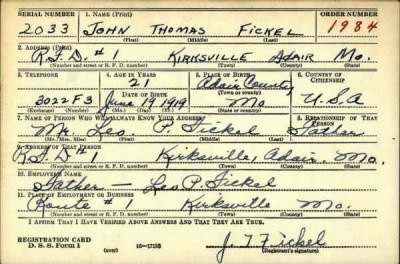 SERIAL NUMBER 1. NAME (Print) ORDER NUMBER
2033 JOHN THOMAS FICKEL 1984
(First) (Middle) (Last)
2. ADDRESS (Print)
R.F.D. #1 KIRKSVILLE ADAIR Mo.
(Number and street or R. F. D. number) (Town) (County) (State)
3. TELEPHONE 4. AGE IN YEARS 5. PLACE OF BIRTH 6. COUNTRY OF CITIZENSHIP
21 Adair County
DATE OF BIRTH (Town or county)
3022F3 June 19 1919 Mo U.S.A
(Exchange) (Number) (Mo.) (Day) (Yr.) (State or country)
7. NAME OF PERSON WHO WILL ALWAYS KNOW YOUR ADDRESS 8. RELATIONSHIP OF THAT PERSON
Mr. Leo P. Fickel Father
(Mr., Mrs., Miss) (First) (Middle) (Last)
9. ADDRESS OF THAT PERSON
R.F.D #1 Kirksville, Adair Mo.
(Number and street or R. F. D. number) (Town) (County) (State)
10. EMPLOYER'S NAME
Father — Leo P Fickel
11. PLACE OF EMPLOYMENT OR BUSINESS
Route #1 Kirksville Mo.
(Number and street or R. F. D. number) (Town) (County) (State)
I AFFIRM THAT I HAVE VERIFIED ABOVE ANSWERS AND THAT THEY ARE TRUE.
REGISTRATION CARD
D. S. S. Form 1 (over) 16—17105 J. T. Fickel
(Registrant's signature)